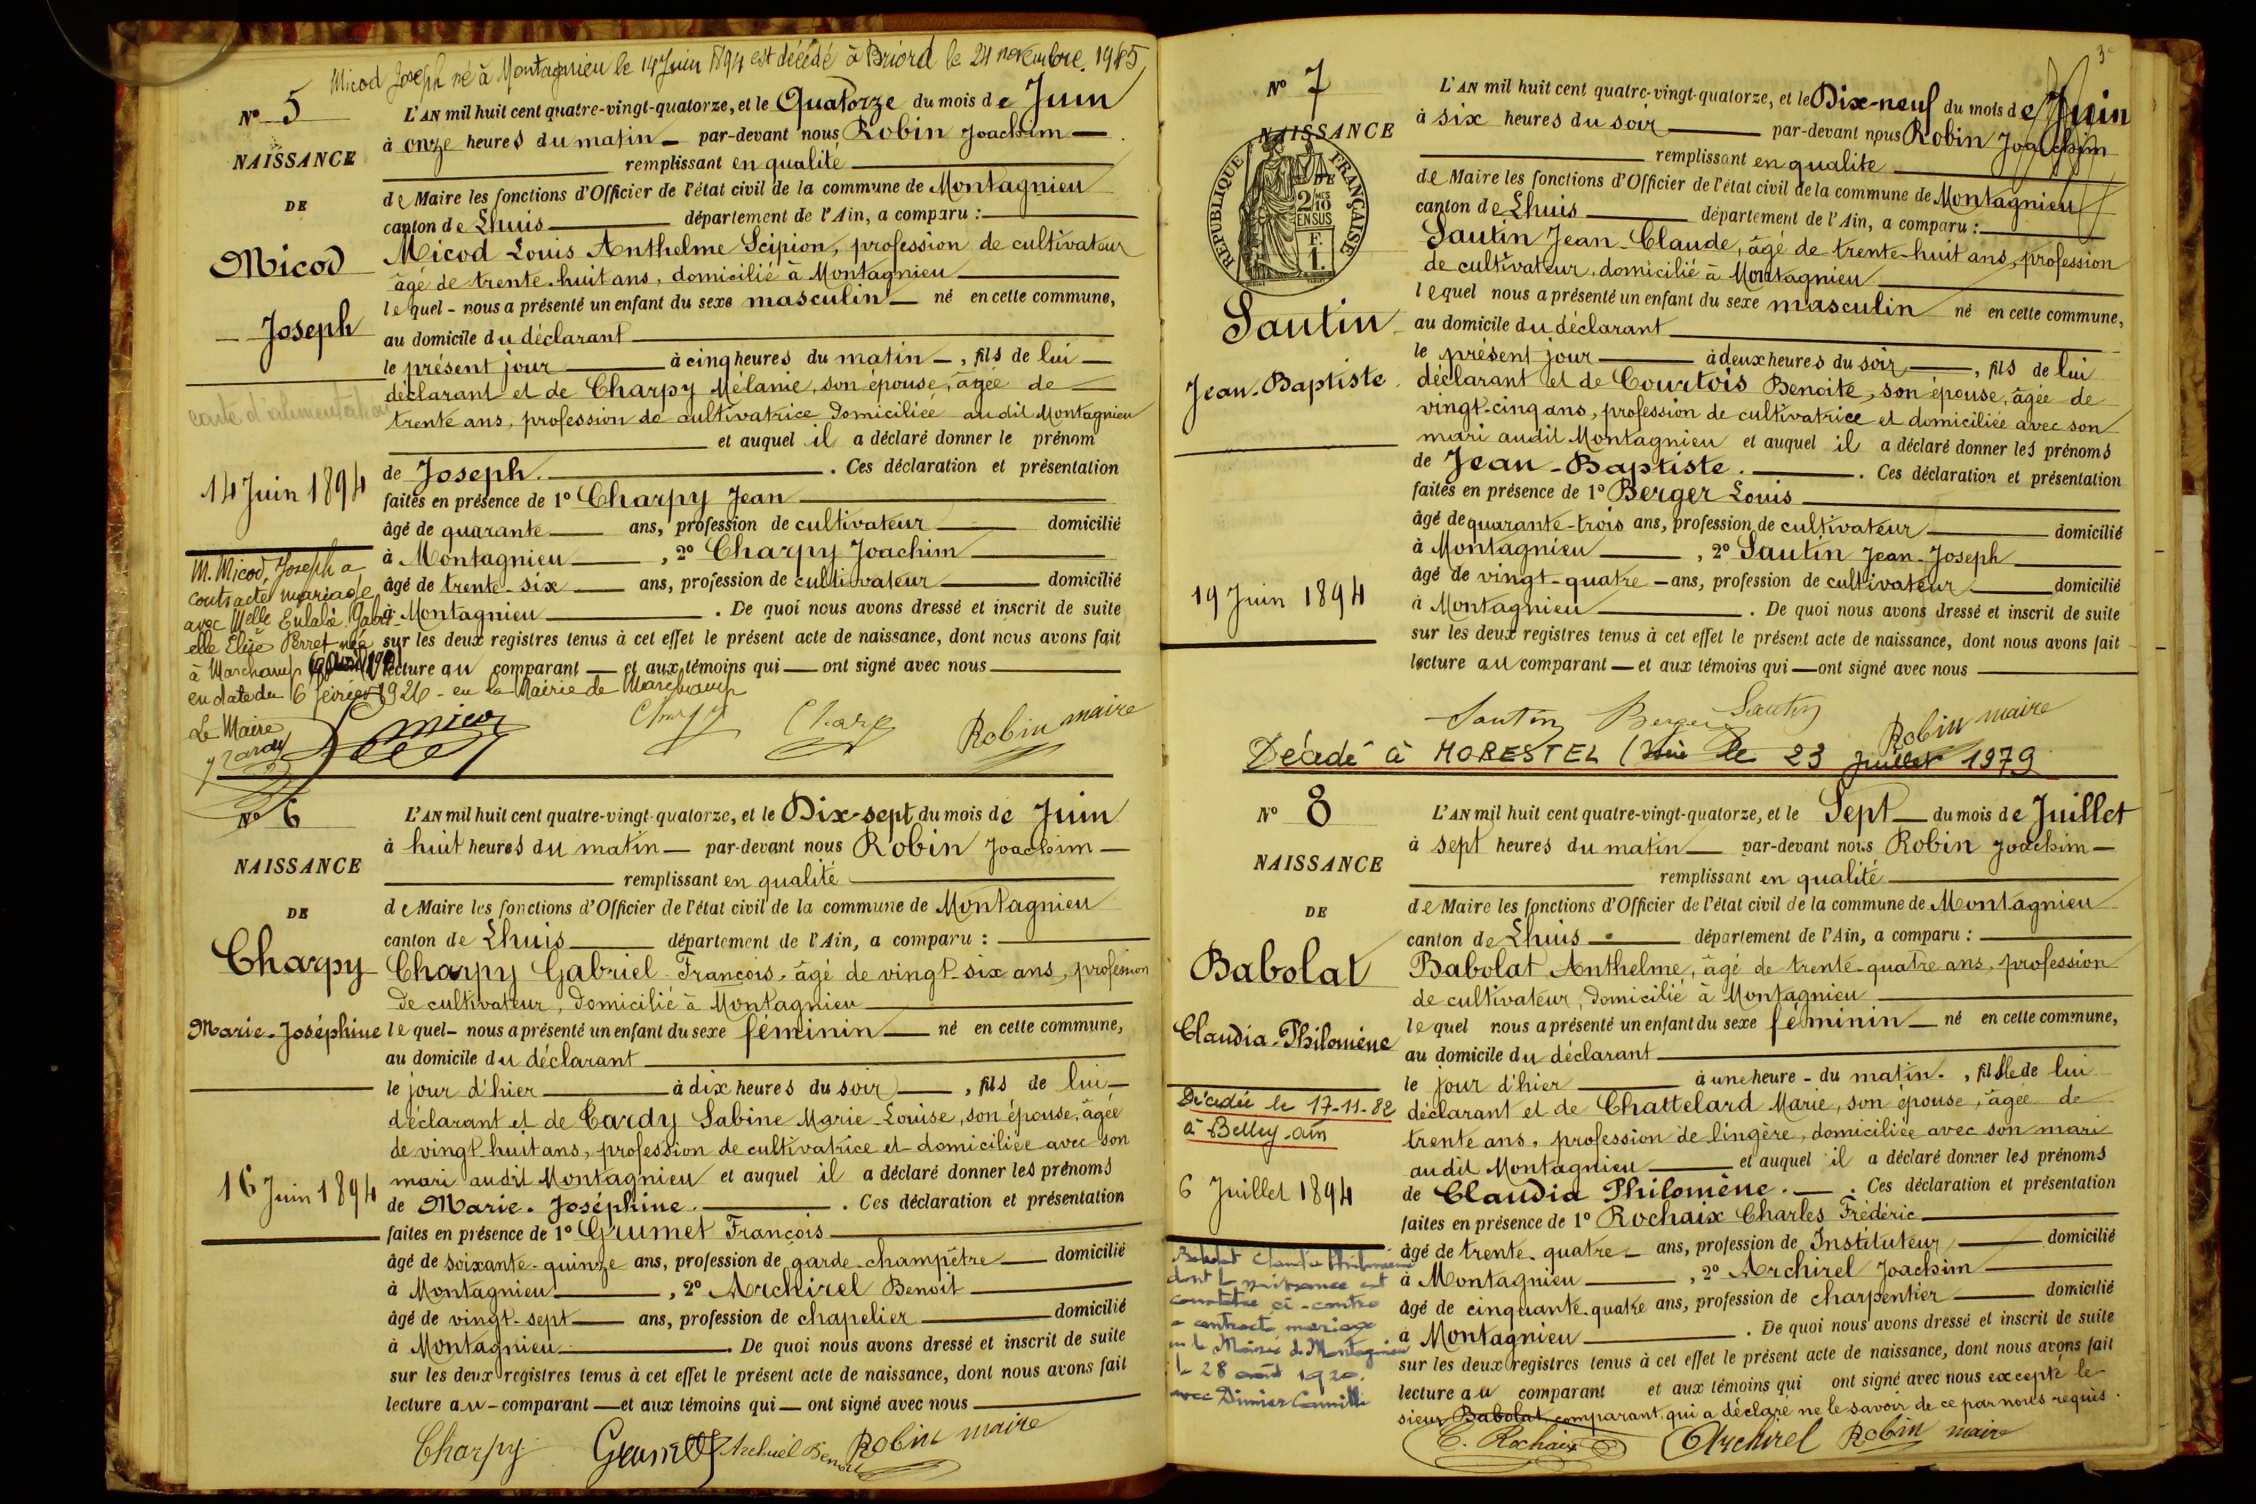 Micod Joseph né à Montagnieu le 14 Juin 1894 est décédé à Briord le 21 novembre 1985
N° 5
NAISSANCE
DE
Micod
Joseph
carte d'alimentation
14 Juin 1894
M. Micod, Joseph a
contracté mariage
avec Melle Eulalie Gabri-
elle Elise Perret née
à Marchamp
en date du 6 février 1926 - en la Mairie de Marchamp
Le Maire
L'AN mil huit cent quatre-vingt-quatorze, et le Quatorze du mois de Juin
à onze heures du matin par-devant nous Robin Joachim
remplissant en qualité
de Maire les fonctions d'Officier de l'état civil de la commune de Montagnieu
canton de Lhuis département de l'Ain, a comparu :
Micod Louis Anthelme Scipion, profession de cultivateur
âgé de trente-huit ans, domicilié à Montagnieu
lequel nous a présenté un enfant du sexe masculin né en cette commune,
au domicile du déclarant
le présent jour à cinq heures du matin, fils de lui
déclarant et de Charpy Mélanie, son épouse, âgée de
trente ans, profession de cultivatrice domiciliée audit Montagnieu
et auquel il a déclaré donner le prénom
de Joseph. Ces déclaration et présentation
faites en présence de 1° Charpy Jean
âgé de quarante ans, profession de cultivateur domicilié
à Montagnieu, 2° Charpy Joachim
âgé de trente-six ans, profession de cultivateur domicilié
à Montagnieu. De quoi nous avons dressé et inscrit de suite
sur les deux registres tenus à cet effet le présent acte de naissance, dont nous avons fait
lecture au comparant et aux témoins qui ont signé avec nous
Micod Charpy Charpy Robin maire
N° 6
NAISSANCE
DE
Charpy
Marie-Joséphine
16 Juin 1894
L'AN mil huit cent quatre-vingt-quatorze, et le Dix-sept du mois de Juin
à huit heures du matin par-devant nous Robin Joachim
remplissant en qualité
de Maire les fonctions d'Officier de l'état civil de la commune de Montagnieu
canton de Lhuis département de l'Ain, a comparu :
Charpy Gabriel François, âgé de vingt-six ans, profession
de cultivateur, domicilié à Montagnieu
lequel nous a présenté un enfant du sexe féminin né en cette commune,
au domicile du déclarant
le jour d'hier à dix heures du soir, fils de lui
déclarant et de Cardy Sabine Marie-Louise, son épouse, âgée
de vingt-huit ans, profession de cultivatrice et domiciliée avec son
mari audit Montagnieu et auquel il a déclaré donner les prénoms
de Marie-Joséphine. Ces déclaration et présentation
faites en présence de 1° Grumet François
âgé de soixante-quinze ans, profession de garde-champêtre domicilié
à Montagnieu, 2° Archirel Benoit
âgé de vingt-sept ans, profession de chapelier domicilié
à Montagnieu. De quoi nous avons dressé et inscrit de suite
sur les deux registres tenus à cet effet le présent acte de naissance, dont nous avons fait
lecture au comparant et aux témoins qui ont signé avec nous
Charpy Grumet Archirel Benoit Robin maire
3
N° 7
NAISSANCE
REPUBLIQUE FRANÇAISE
2/10 EN SUS
F. 1.
DE
Sautin
Jean-Baptiste
19 Juin 1894
L'AN mil huit cent quatre-vingt-quatorze, et le Dix-neuf du mois de Juin
à six heures du soir par-devant nous Robin Joachim
remplissant en qualité
de Maire les fonctions d'Officier de l'état civil de la commune de Montagnieu
canton de Lhuis département de l'Ain, a comparu :
Sautin Jean-Claude, âgé de trente-huit ans, profession
de cultivateur, domicilié à Montagnieu
lequel nous a présenté un enfant du sexe masculin né en cette commune,
au domicile du déclarant
le présent jour à deux heures du soir, fils de lui
déclarant et de Courtois Benoite, son épouse, âgée de
vingt-cinq ans, profession de cultivatrice et domiciliée avec son
mari audit Montagnieu et auquel il a déclaré donner les prénoms
de Jean-Baptiste. Ces déclaration et présentation
faites en présence de 1° Berger Louis
âgé de quarante-trois ans, profession de cultivateur domicilié
à Montagnieu, 2° Sautin Jean-Joseph
âgé de vingt-quatre ans, profession de cultivateur domicilié
à Montagnieu. De quoi nous avons dressé et inscrit de suite
sur les deux registres tenus à cet effet le présent acte de naissance, dont nous avons fait
lecture au comparant et aux témoins qui ont signé avec nous
Sautin Berger Sautin Robin maire
Décédé à MORESTEL (Isère le 23 juillet 1979
N° 8
NAISSANCE
DE
Babolat
Claudia-Philomène
Décédée le 17-11-82
à Belley-ain
6 Juillet 1894
Babolat Claudia Philomène
dont la naissance est
constatée ci-contre
a contracté mariage
en la Mairie de Montagnieu
le 28 août 1920.
avec Dimier Camille
L'AN mil huit cent quatre-vingt-quatorze, et le Sept du mois de Juillet
à sept heures du matin par-devant nous Robin Joachim
remplissant en qualité
de Maire les fonctions d'Officier de l'état civil de la commune de Montagnieu
canton de Lhuis département de l'Ain, a comparu :
Babolat Anthelme, âgé de trente-quatre ans, profession
de cultivateur, domicilié à Montagnieu
lequel nous a présenté un enfant du sexe féminin né en cette commune,
au domicile du déclarant
le jour d'hier à une heure du matin, fille de lui
déclarant et de Chattelard Marie, son épouse, âgée de
trente ans, profession de lingère, domiciliée avec son mari
audit Montagnieu et auquel il a déclaré donner les prénoms
de Claudia Philomène. Ces déclaration et présentation
faites en présence de 1° Rochaix Charles Frédéric
âgé de trente-quatre ans, profession de Instituteur domicilié
à Montagnieu, 2° Archirel Joachim
âgé de cinquante-quatre ans, profession de charpentier domicilié
à Montagnieu. De quoi nous avons dressé et inscrit de suite
sur les deux registres tenus à cet effet le présent acte de naissance, dont nous avons fait
lecture au comparant et aux témoins qui ont signé avec nous excepté le
sieur Babolat comparant, qui a déclaré ne le savoir de ce par nous requis.
C. Rochaix Archirel Robin maire